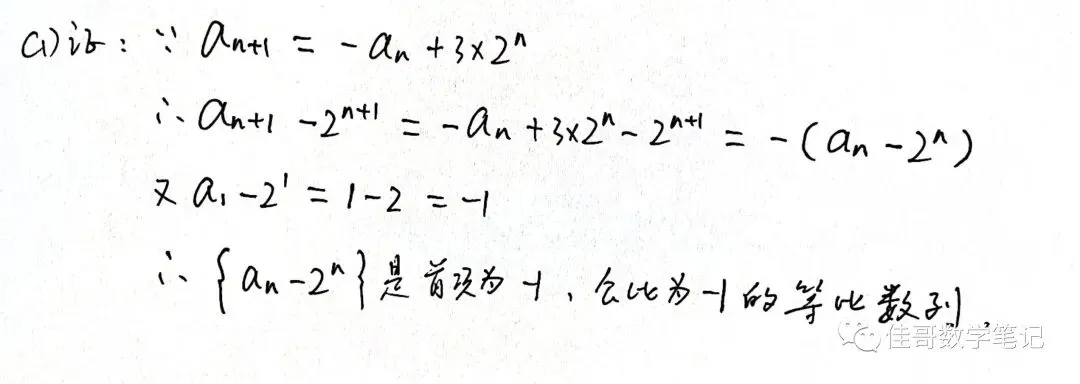 (1)证：∵ aₙ₊₁ = -aₙ + 3×2ⁿ
∴ aₙ₊₁ - 2ⁿ⁺¹ = -aₙ + 3×2ⁿ - 2ⁿ⁺¹ = -(aₙ - 2ⁿ)
又 a₁ - 2¹ = 1 - 2 = -1
∴ {aₙ - 2ⁿ} 是首项为 -1、公比为 -1 的等比数列。
佳哥数学笔记